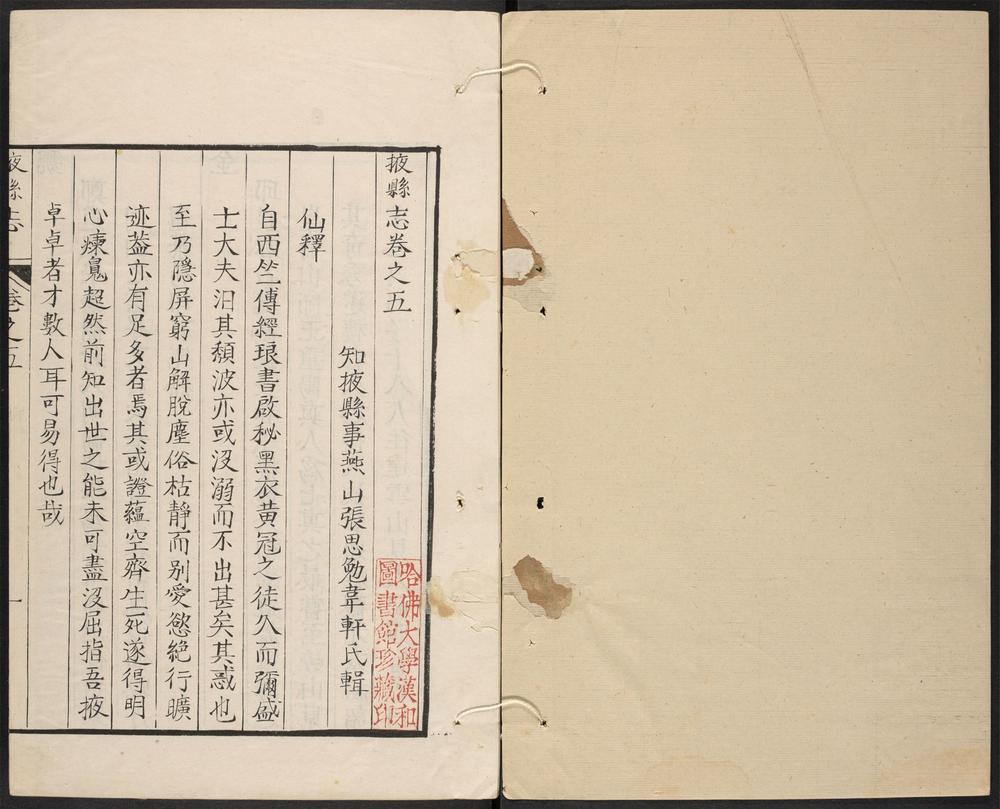 掖縣志卷之五
知掖縣事燕山張思勉葦軒氏輯
仙釋
自西竺傳經琅書啟秘黑衣黄冠之徒久而彌盛
士大夫汨其頽波亦或没溺而不出甚矣其惑也
至乃隱屏窮山解脫塵俗枯靜而别愛慾絶行曠
迹葢亦有足多者焉其或證蘊空齊生死遂得明
心煉鬼超然前知出世之能未可盡没屈指吾掖
卓卓者才數人耳可易得也哉
掖縣志
卷之五
一
哈佛大學漢和
圖書館珍藏印